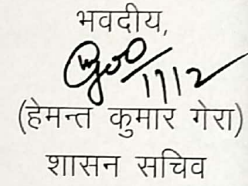 भवदीय,
17/12
(हेमन्त कुमार गेरा)
शासन सचिव